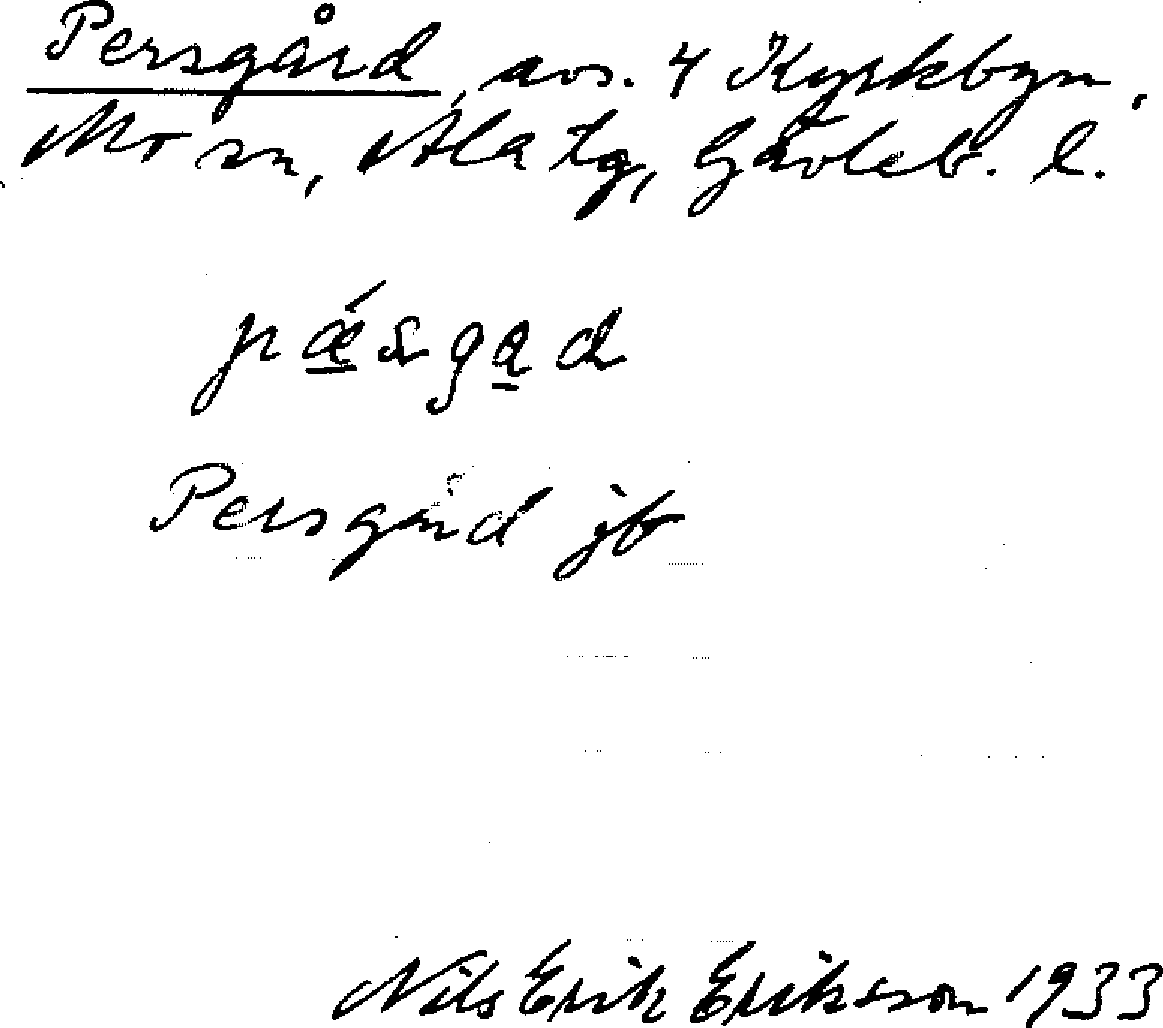 Persgård, avs. 4 Kyrkbyn,
Mo sn, Ala tg, Gävleb. l.
pǽsgad
Persgård jb
Nils Erik Eriksson 1933